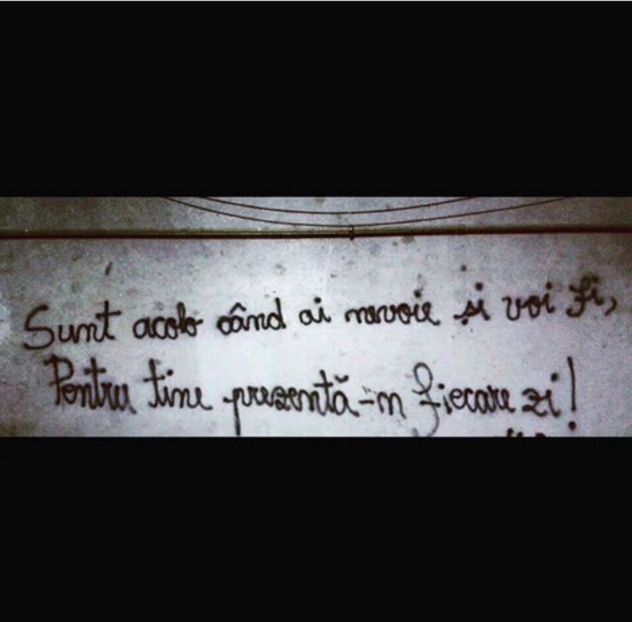 Sunt acolo când ai nevoie și voi fi,
Pentru tine prezentă-n fiecare zi!